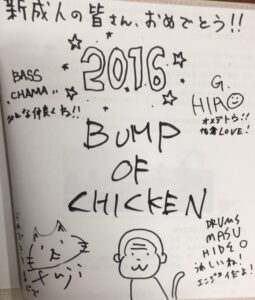 新成人の皆さん、おめでとう!!
2016
BASS
"CHAMA"
みんな仲良くね!!
G.
HIRO
オメデトウ!!
LOVE!
BUMP
OF
CHICKEN
DRUMS
MASU
HIDEO
うれしいね!
エンジョイだよ!
おめでとうございます
fuji